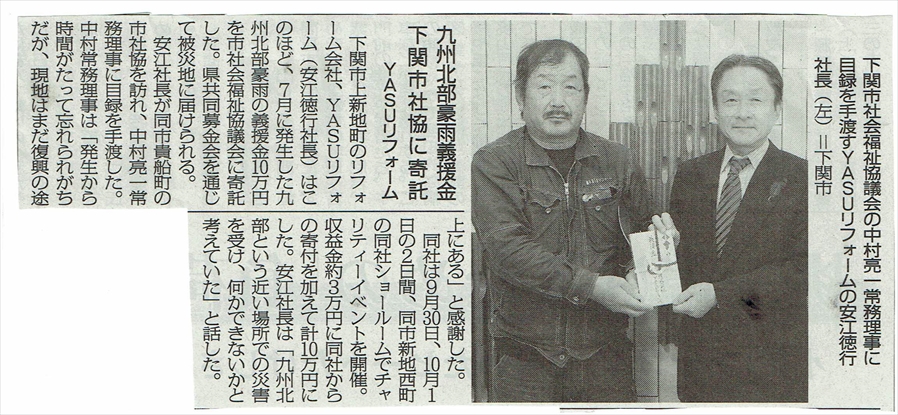 下関市社会福祉協議会の中村亮一常務理事に
目録を手渡すYASUリフォームの安江徳行
社長（左）＝下関市
九州北部豪雨義援金
下関市社協に寄託
YASUリフォーム
下関市上新地町のリフォ
ーム会社、YASUリフォ
ーム（安江徳行社長）はこ
のほど、7月に発生した九
州北部豪雨の義援金10万円
を市社会福祉協議会に寄託
した。県共同募金会を通じ
て被災地に届けられる。
安江社長が同市貴船町の
市社協を訪れ、中村亮一常
務理事に目録を手渡した。
中村常務理事は「発生から
時間がたって忘れられがち
だが、現地はまだ復興の途
上にある」と感謝した。
同社は9月30日、10月1
日の2日間、同市新地西町
の同社ショールームでチャ
リティーイベントを開催。
収益金約3万円に同社から
の寄付を加えて計10万円に
した。安江社長は「九州北
部という近い場所での災害
を受け、何かできないかと
考えていた」と話した。